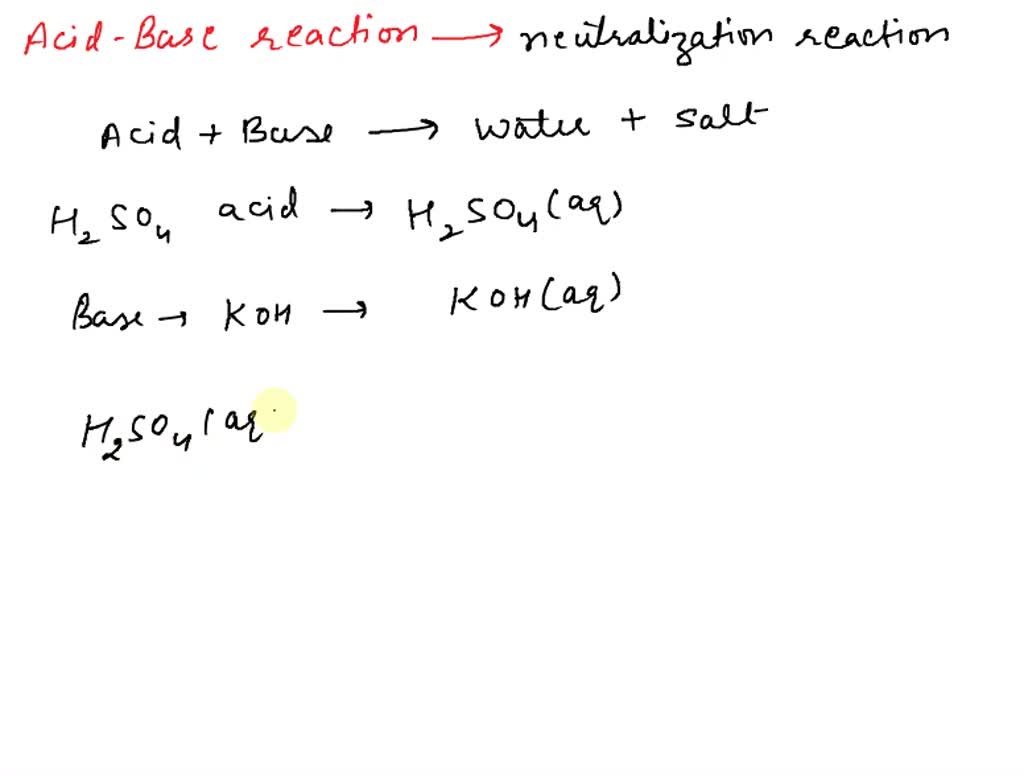 Acid-Base reaction → neutralization reaction
Acid + Base → water + salt
H₂SO₄ acid → H₂SO₄(aq)
Base → KOH → KOH(aq)
H₂SO₄(aq